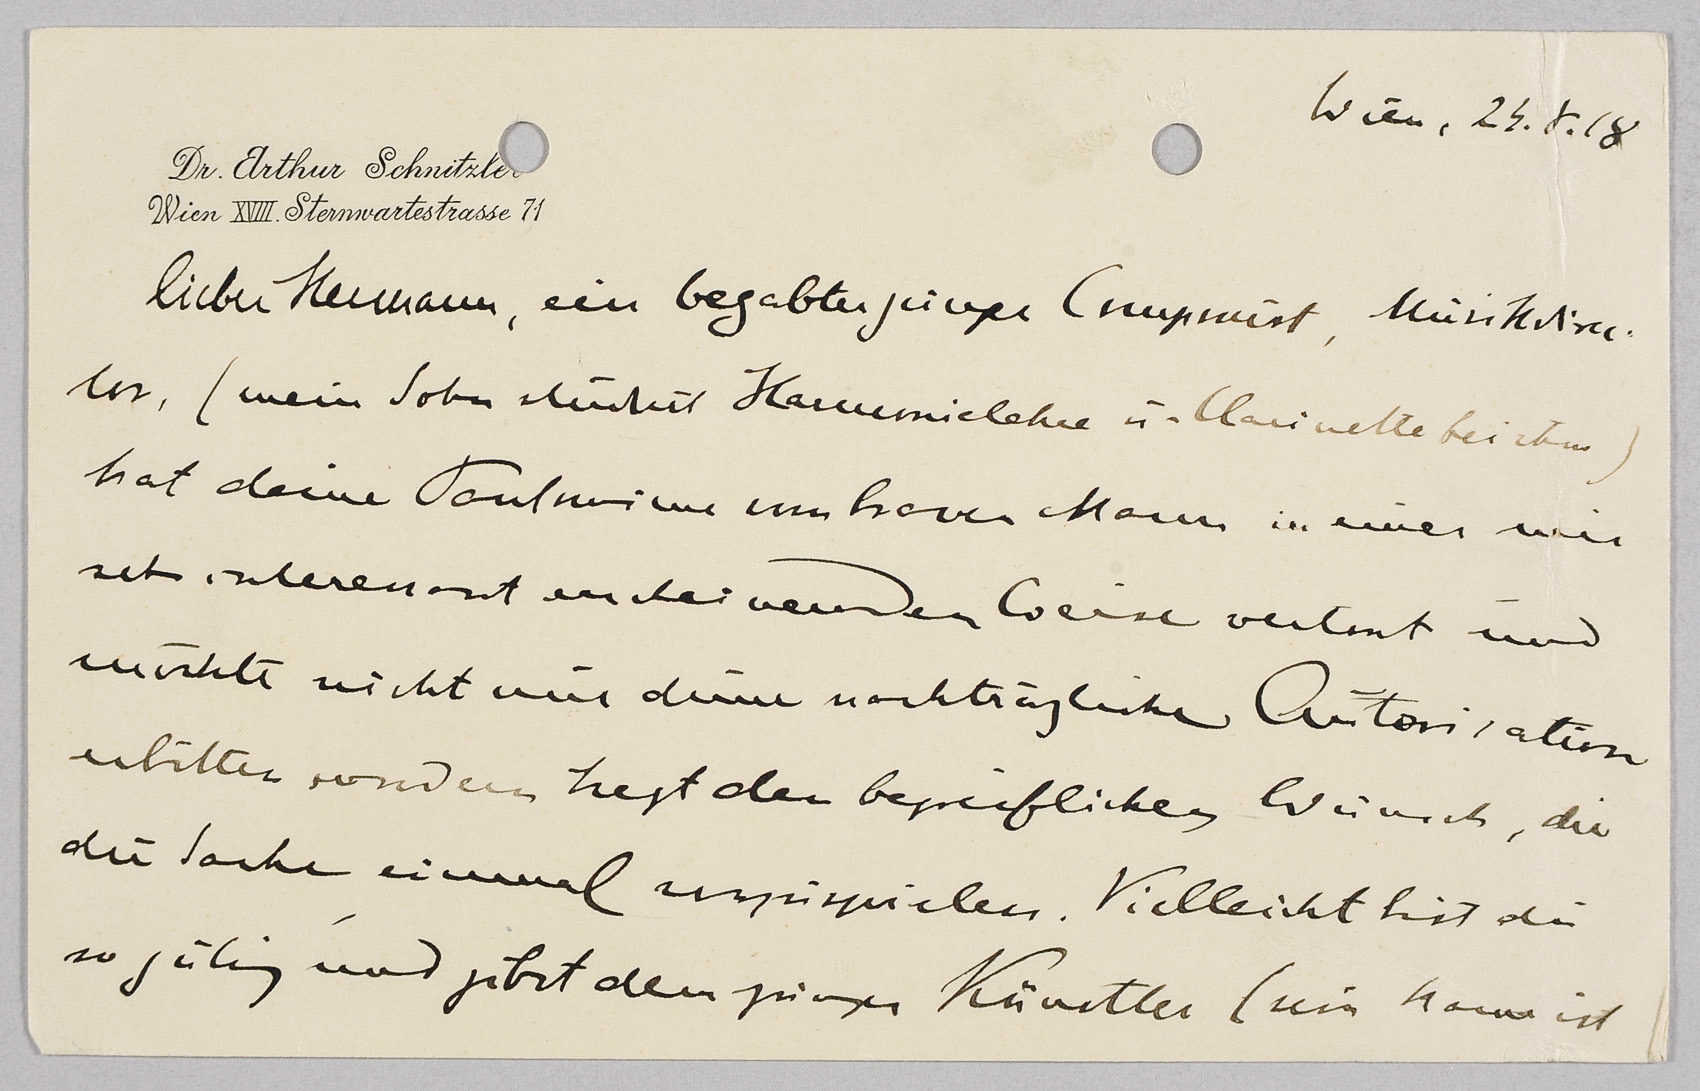 Wien, 24. 8. 18
Dr. Arthur Schnitzler
Wien XVIII. Sternwartestrasse 71
lieber Hermann, ein begabter junger Componist, Musikdirec-
tor, (mein Sohn studirt Harmonielehre u. Clarinette bei ihm)
hat deine Pantomime vom braven Mann in einer mir
sehr interessant erscheinenden Weise vertont und
möchte nicht nur deine nachträgliche Autorisation
erbitten sondern hegt den begreiflichen Wunsch, dir
die Sache einmal vorzuspielen. Vielleicht bist du
so gütig und gibst dem jungen Künstler (sein Name ist